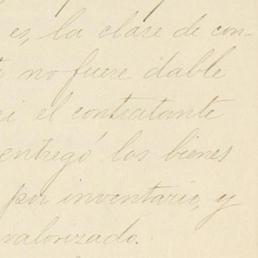 es, la clase de con-
no fuere dable
el contratante
entregó los bienes
por inventario, y
valorizado.